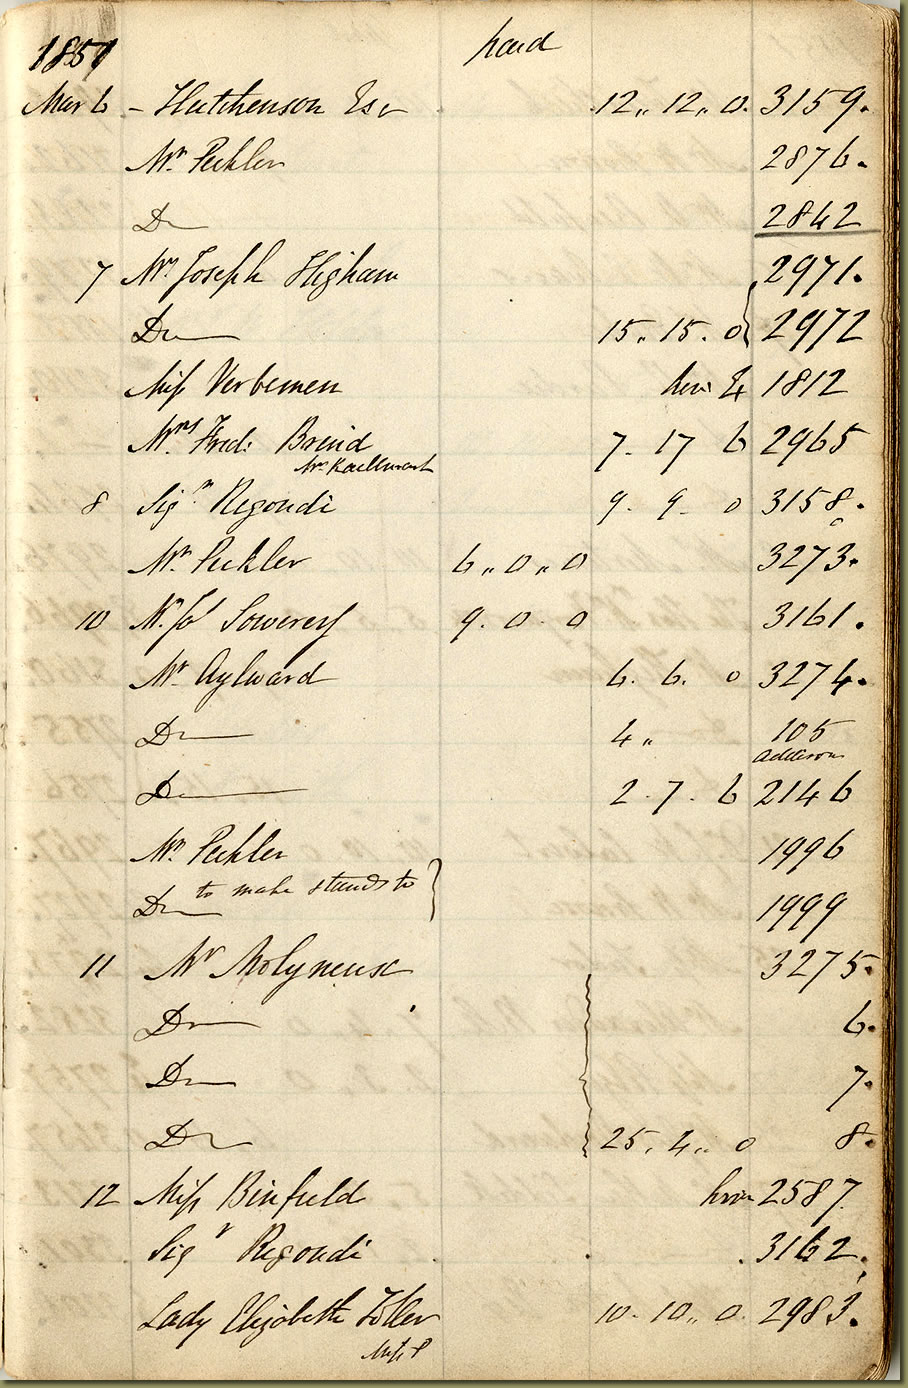 1851 paid
Mar 6 - Hutchenson Esqr 12,, 12,, 0. 3159.
Mr. Peckler 2876.
Do 2842
7 Mrs Joseph Higham 2971.
Do 15,, 15. 0 2972
Miss Verbemen 1812
Mrs Fred: Breind 7 - 17 6 2965
8 Sigr Regondi 9 - 9 - 0 3158.
Mr. Peckler 6,, 0,, 0 3273.
10 Mr. Jos Sowerey 9. 0. 0 3161.
Mr. Aylward 6. 6. 0 3274.
Do 4,, 105
Do 2. 7. 6 2146
Mr. Peckler 1996
Do to make stands to 1999
11 Mr Molyneux 3275.
Do 6.
Do 7.
Do 25. 4,, 0 8.
12 Miss Binfield 2587.
Sigr Regondi 3162.
Lady Elizabeth Toller 10. 10,, 0 2983.
Miss P